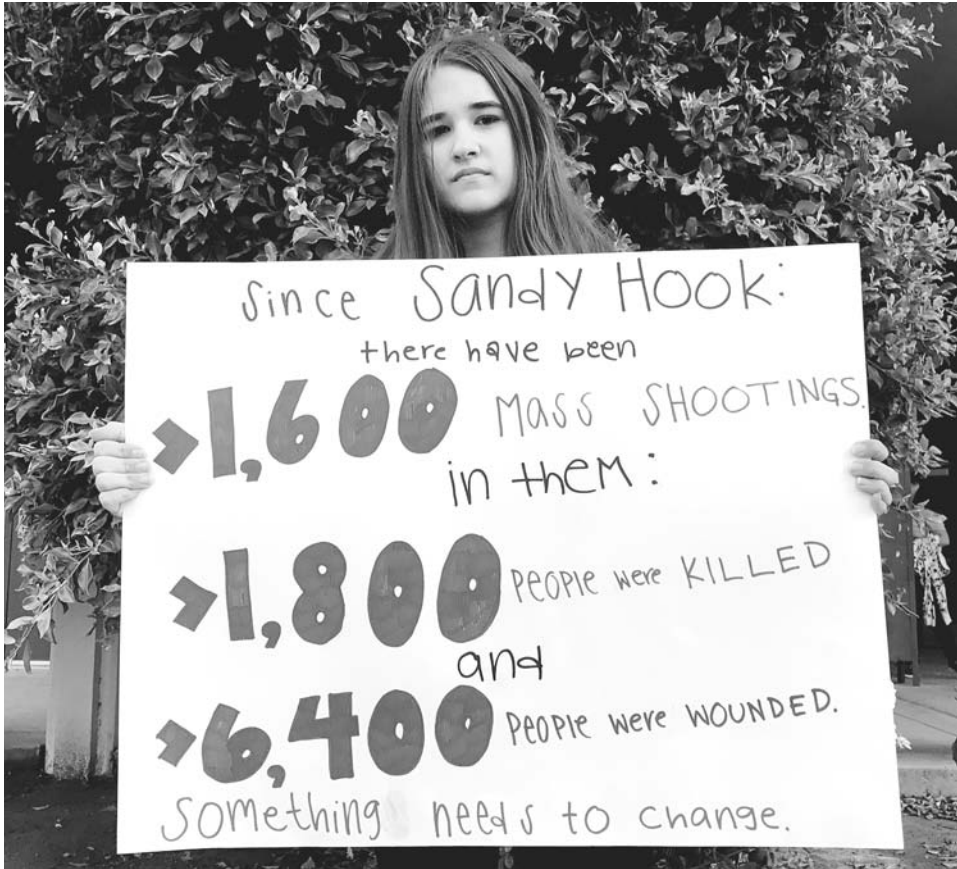 since Sandy Hook:
there have been
>1,600 Mass SHOOTINGS.
in them:
>1,800 PEOPlE were KILLED
and
>6,400 PEOPlE were WOUNDED.
Something needs to change.